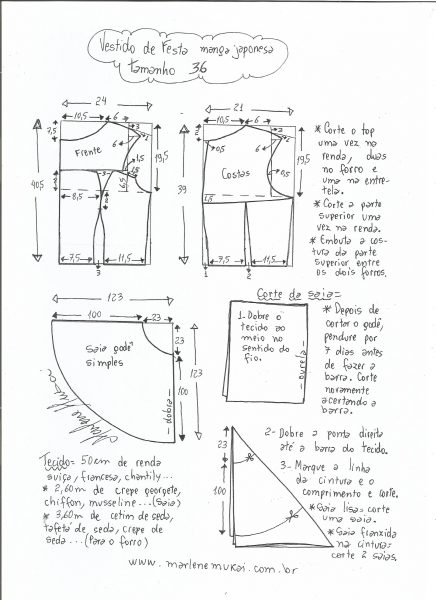 Vestido de Festa manga japonesa
tamanho 36
24
10,5
6
7,5
3
2
6
Frente
19,5
1,5
40,5
3
8,5
6,5
2
7,5
11,5
3
21
10,5
6
2
3
2
0,5
6
19,5
Costas
0,5
39
7,5
11,5
1
2
* Corte o top
uma vez na
renda, duas
no forro e
uma na entre-
tela.
* Corte a parte
superior uma
vez na renda.
* Embuta a cos-
tura da parte
superior entre
os dois forros.
123
100
23
23
Saia godê
simples
123
100
- dobra -
Marlene Mukai
Corte da saia=
1. Dobre o
tecido ao
meio no
sentido do
fio.
- ourela -
* Depois de
cortar o godê,
pendure por
7 dias antes
de fazer a
barra. Corte
novamente
acertando a
barra.
23
100
2- Dobre a ponta direita
até a barra do tecido.
3- Marque a linha
da cintura e o
comprimento e corte.
* Saia lisa= corte
uma saia.
* Saia franzida
na cintura=
corte 2 saias.
Tecido= 50cm de renda
suiça, francesa, chantily...
* 2,60m de crepe georgete,
chiffon, musseline... (Saia)
* 3,60m de cetim de seda,
tafetá de seda, crepe de
seda... (Para o forro)
www.marlenemukai.com.br